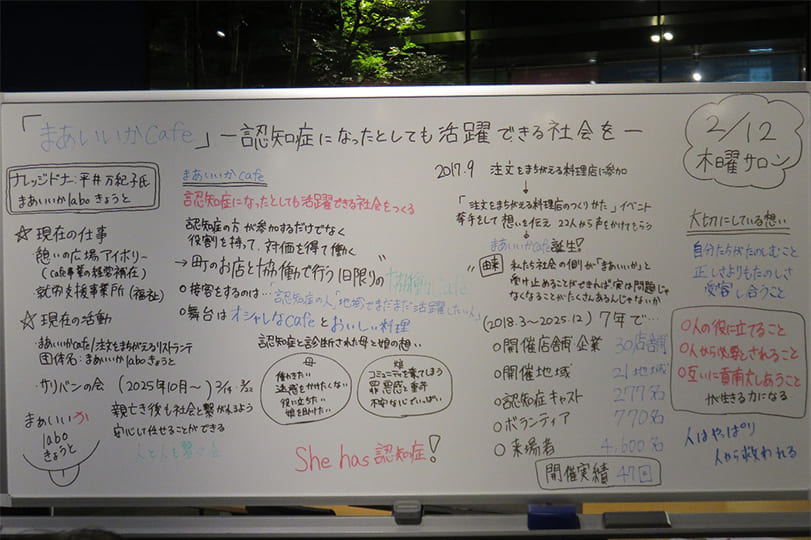 「まあいいかcafe」ー認知症になったとしても活躍できる社会をー
2/12
木曜サロン
ナレッジドナー:平井万紀子氏
まあいいかlaboきょうと
☆現在の仕事
憩いの広場アイボリー
(cafe事業の経営補佐)
就労支援事業所(福祉)
☆現在の活動
・まあいいかcafe/注文をまちがえるリストランテ
団体名:まあいいかlaboきょうと
・サリバンの会 (2025年10月〜)3/14・3/22
親亡き後も社会と繋がれるよう
安心して任せることができる
人と人を繋ぐ会
まぁいいか
labo
きょうと
まあいいかcafe
認知症になったとしても活躍できる社会をつくる
認知症の方が参加するだけでなく
役割を持って、対価を得て働く
→町のお店と協働で行う1日限りの"協働型cafe"
○接客をするのは…「認知症の人」「地域でまだまだ活躍したい人」
○舞台はオシャレなcafeとおいしい料理
認知症と診断された母と娘の想い
母
働きたい
迷惑をかけたくない
役に立ちたい
娘を助けたい
娘
コミュニティを奪てしまう
罪悪感と重荷
不安な心でいっぱい
She has 認知症!
2017.9 注文をまちがえる料理店に参加
「注文をまちがえる料理店のつくりかた」イベント
挙手をして想いを伝え 22人から声をかけてもらう
まあいいかcafe誕生!
由来
私たち社会の側が「まあいいか」と
受け止めることができれば実は問題じゃ
なくなることがたくさんあるんじゃないか
(2018.3〜2025.12)7年で…
○開催店舗 企業 30店舗
○開催地域 21地域
○認知症キャスト 277名
○ボランティア 770名
○来場者 4,600名
開催実績 47回
大切にしている想い
自分たちがたのしむこと
正しさよりもたのしさ
受容し合うこと
○人の役に立てること
○人から必要とされること
○互いに貢献しあうこと
が生きる力になる
人はやっぱり
人から救われる